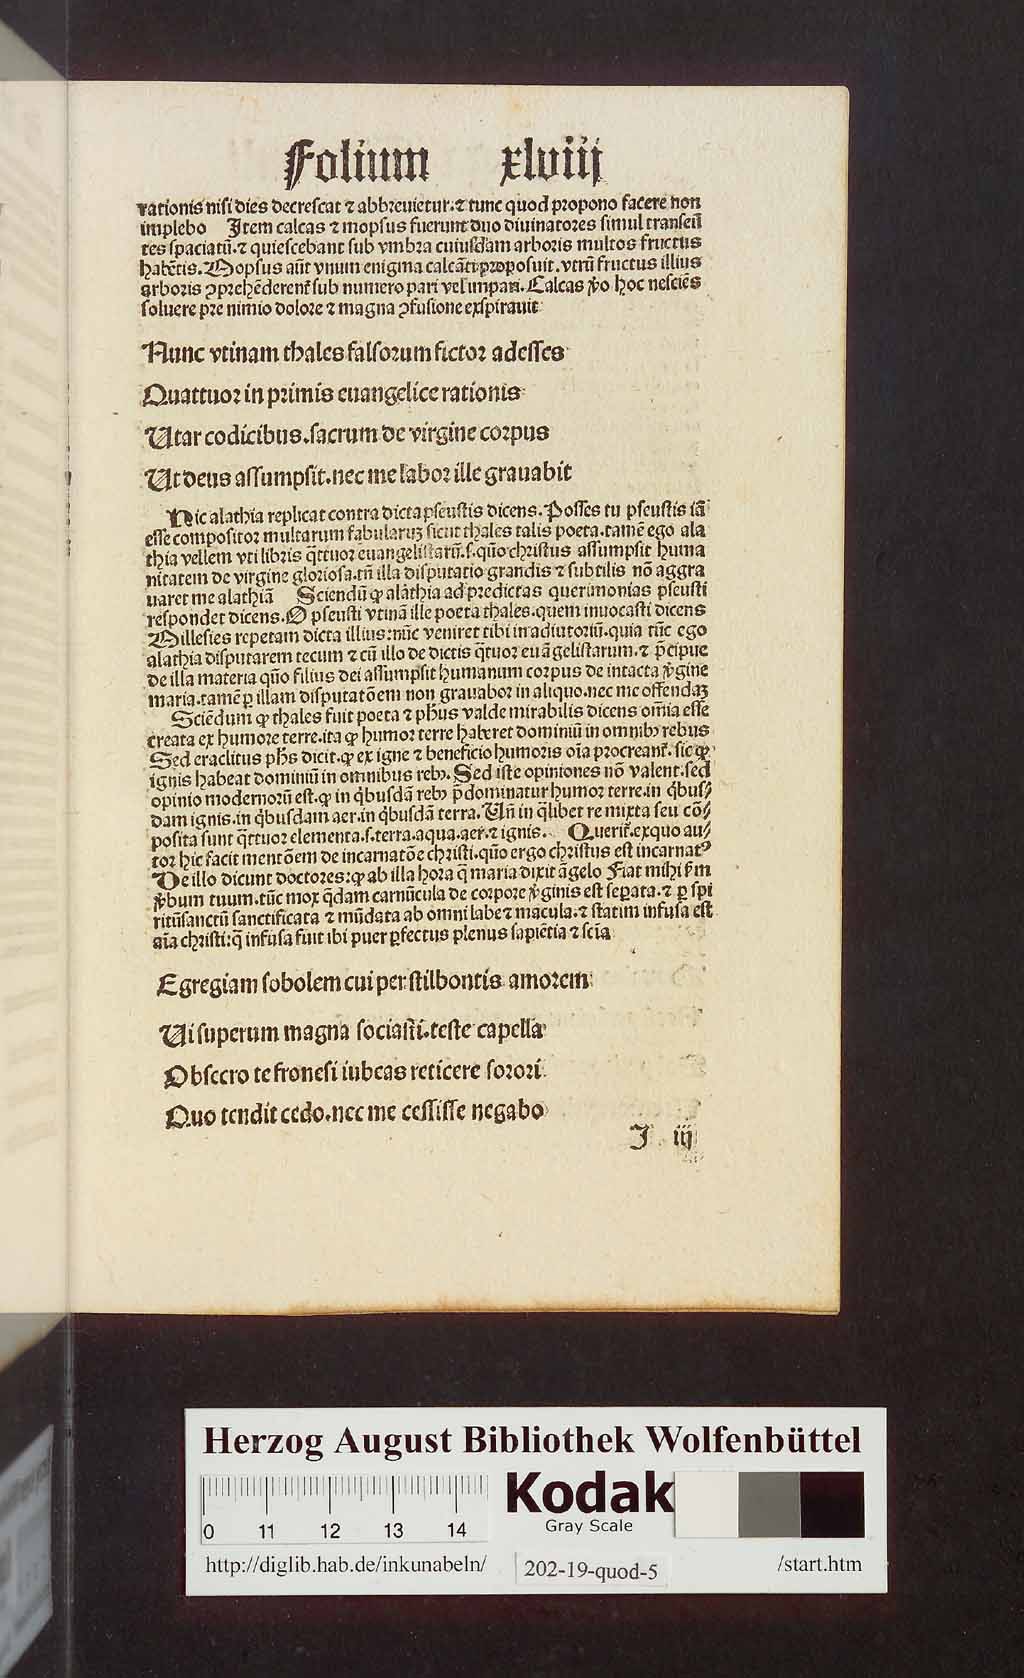 Folium xlviij
rationis nisi dies decrescat ⁊ abbreuietur.⁊ tunc quod propono facere non
implebo Item calcas ⁊ mopsus fuerunt duo diuinatores simul transeũ
tes spaciatũ.⁊ quiescebant sub vmbra cuiusdam arboris multos fructus
habẽtis. Mopsus aũt vnum enigma calcãti proposuit.vtrũ fructus illius
arboris ꝯprehẽderent̃ sub numero pari vel impari. Calcas v̾o hoc nesciẽs
soluere pre nimio dolore ⁊ magna ꝯfusione exspirauit
Nunc vtinam thales falsorum fictor adesses
Quattuor in primis euangelice rationis
Utar codicibus.sacrum de virgine corpus
Ut deus assumpsit.nec me labor ille grauabit
Hic alathia replicat contra dicta pseustis dicens. Posses tu pseustis iã
esse compositor multarum fabularuꝫ sicut thales talis poeta.tamẽ ego ala
thia vellem vti libris q̃ttuor euangelistarũ.s.quõ christus assumpsit huma
nitatem de virgine gloriosa.tñ illa disputatio grandis ⁊ subtilis nõ aggra
uaret me alathiã Sciendũ ꝙ alathia ad predictas querimonias pseusti
respondet dicens. O pseusti vtinã ille poeta thales.quem inuocasti dicens
Millesies repetam dicta illius:nũc veniret tibi in adiutoriũ.quia tũc ego
alathia disputarem tecum ⁊ cũ illo de dictis q̃tuor euãgelistarum.⁊ p̃cipue
de illa materia quõ filius dei assumpsit humanum corpus de intacta v̾gine
maria.tamẽ ꝑ illam disputatõem non grauabor in aliquo.nec me offendaꝫ
Sciẽdum ꝙ thales fuit poeta ⁊ ph̃us valde mirabilis dicens om̃ia esse
creata ex humore terre.ita ꝙ humor terre haberet dominiũ in omnibꝰ rebus
Sed eraclitus ph̃s dicit.ꝙ ex igne ⁊ beneficio humoris oĩa procreant̃. sic ꝙ
ignis habeat dominiũ in omnibus rebꝰ. Sed iste opiniones nõ valent.sed
opinio modernorũ est.ꝙ in q̇busdã rebꝰ p̃dominatur humor terre.in q̇bus⸗
dam ignis.in q̇busdam aer.in q̇busdã terra. Uñ in q̃libet re mixta seu cõ⸗
posita sunt q̃ttuor elementa.s.terra.aqua.aer.⁊ ignis. Querit̃.exquo au⸗
tor hic facit mentõem de incarnatõe christi.quõ ergo christus est incarnatꝰ
De illo dicunt doctores:ꝙ ab illa hora q̃ maria dixit ãgelo Fiat mihi ẜm
v̾bum tuum.tũc mox q̃dam carnũcula de corpore v̾ginis est seꝑata.⁊ ꝑ spi
ritũsanctũ sanctificata ⁊ mũdata ab omni labe ⁊ macula.⁊ statim infusa est
aĩa christi:q̃ infusa fuit ibi puer ꝑfectus plenus sapiẽtia ⁊ scĩa
Egregiam sobolem cui per stilbontis amorem
Ui superum magna sociasti.teste capella
Obsecro te fronesi iubeas reticere sorori
Quo tendit cedo.nec me cessisse negabo
I iij
Herzog August Bibliothek Wolfenbüttel
Kodak
Gray Scale
0 11 12 13 14
http://diglib.hab.de/inkunabeln/ 202-19-quod-5 /start.htm